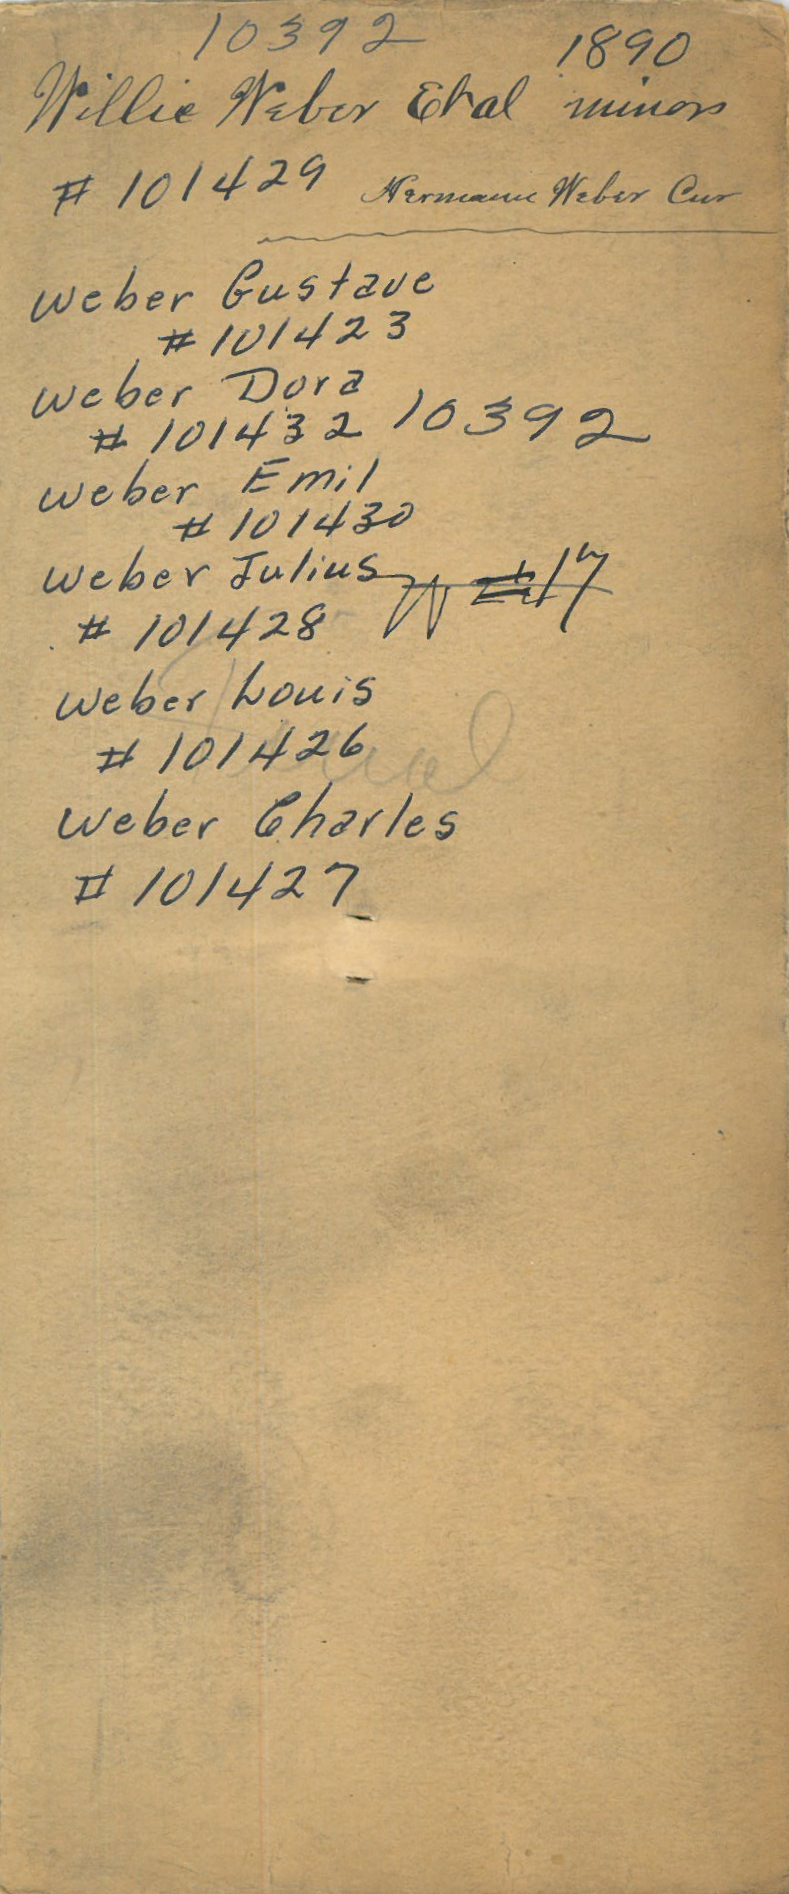 10392
1890
Willie Weber Etal minors
# 101429 Hermann Weber Cur
Weber Gustave
# 101423
Weber Dora
# 101432 10392
Weber Emil
# 101430
Weber Julius
# 101428
Weber Louis
# 101426
Weber Charles
# 101427